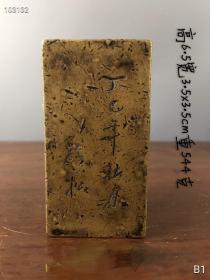 103132
高6.5宽3.5x3.5cm重544克
丁巳年秋
B1